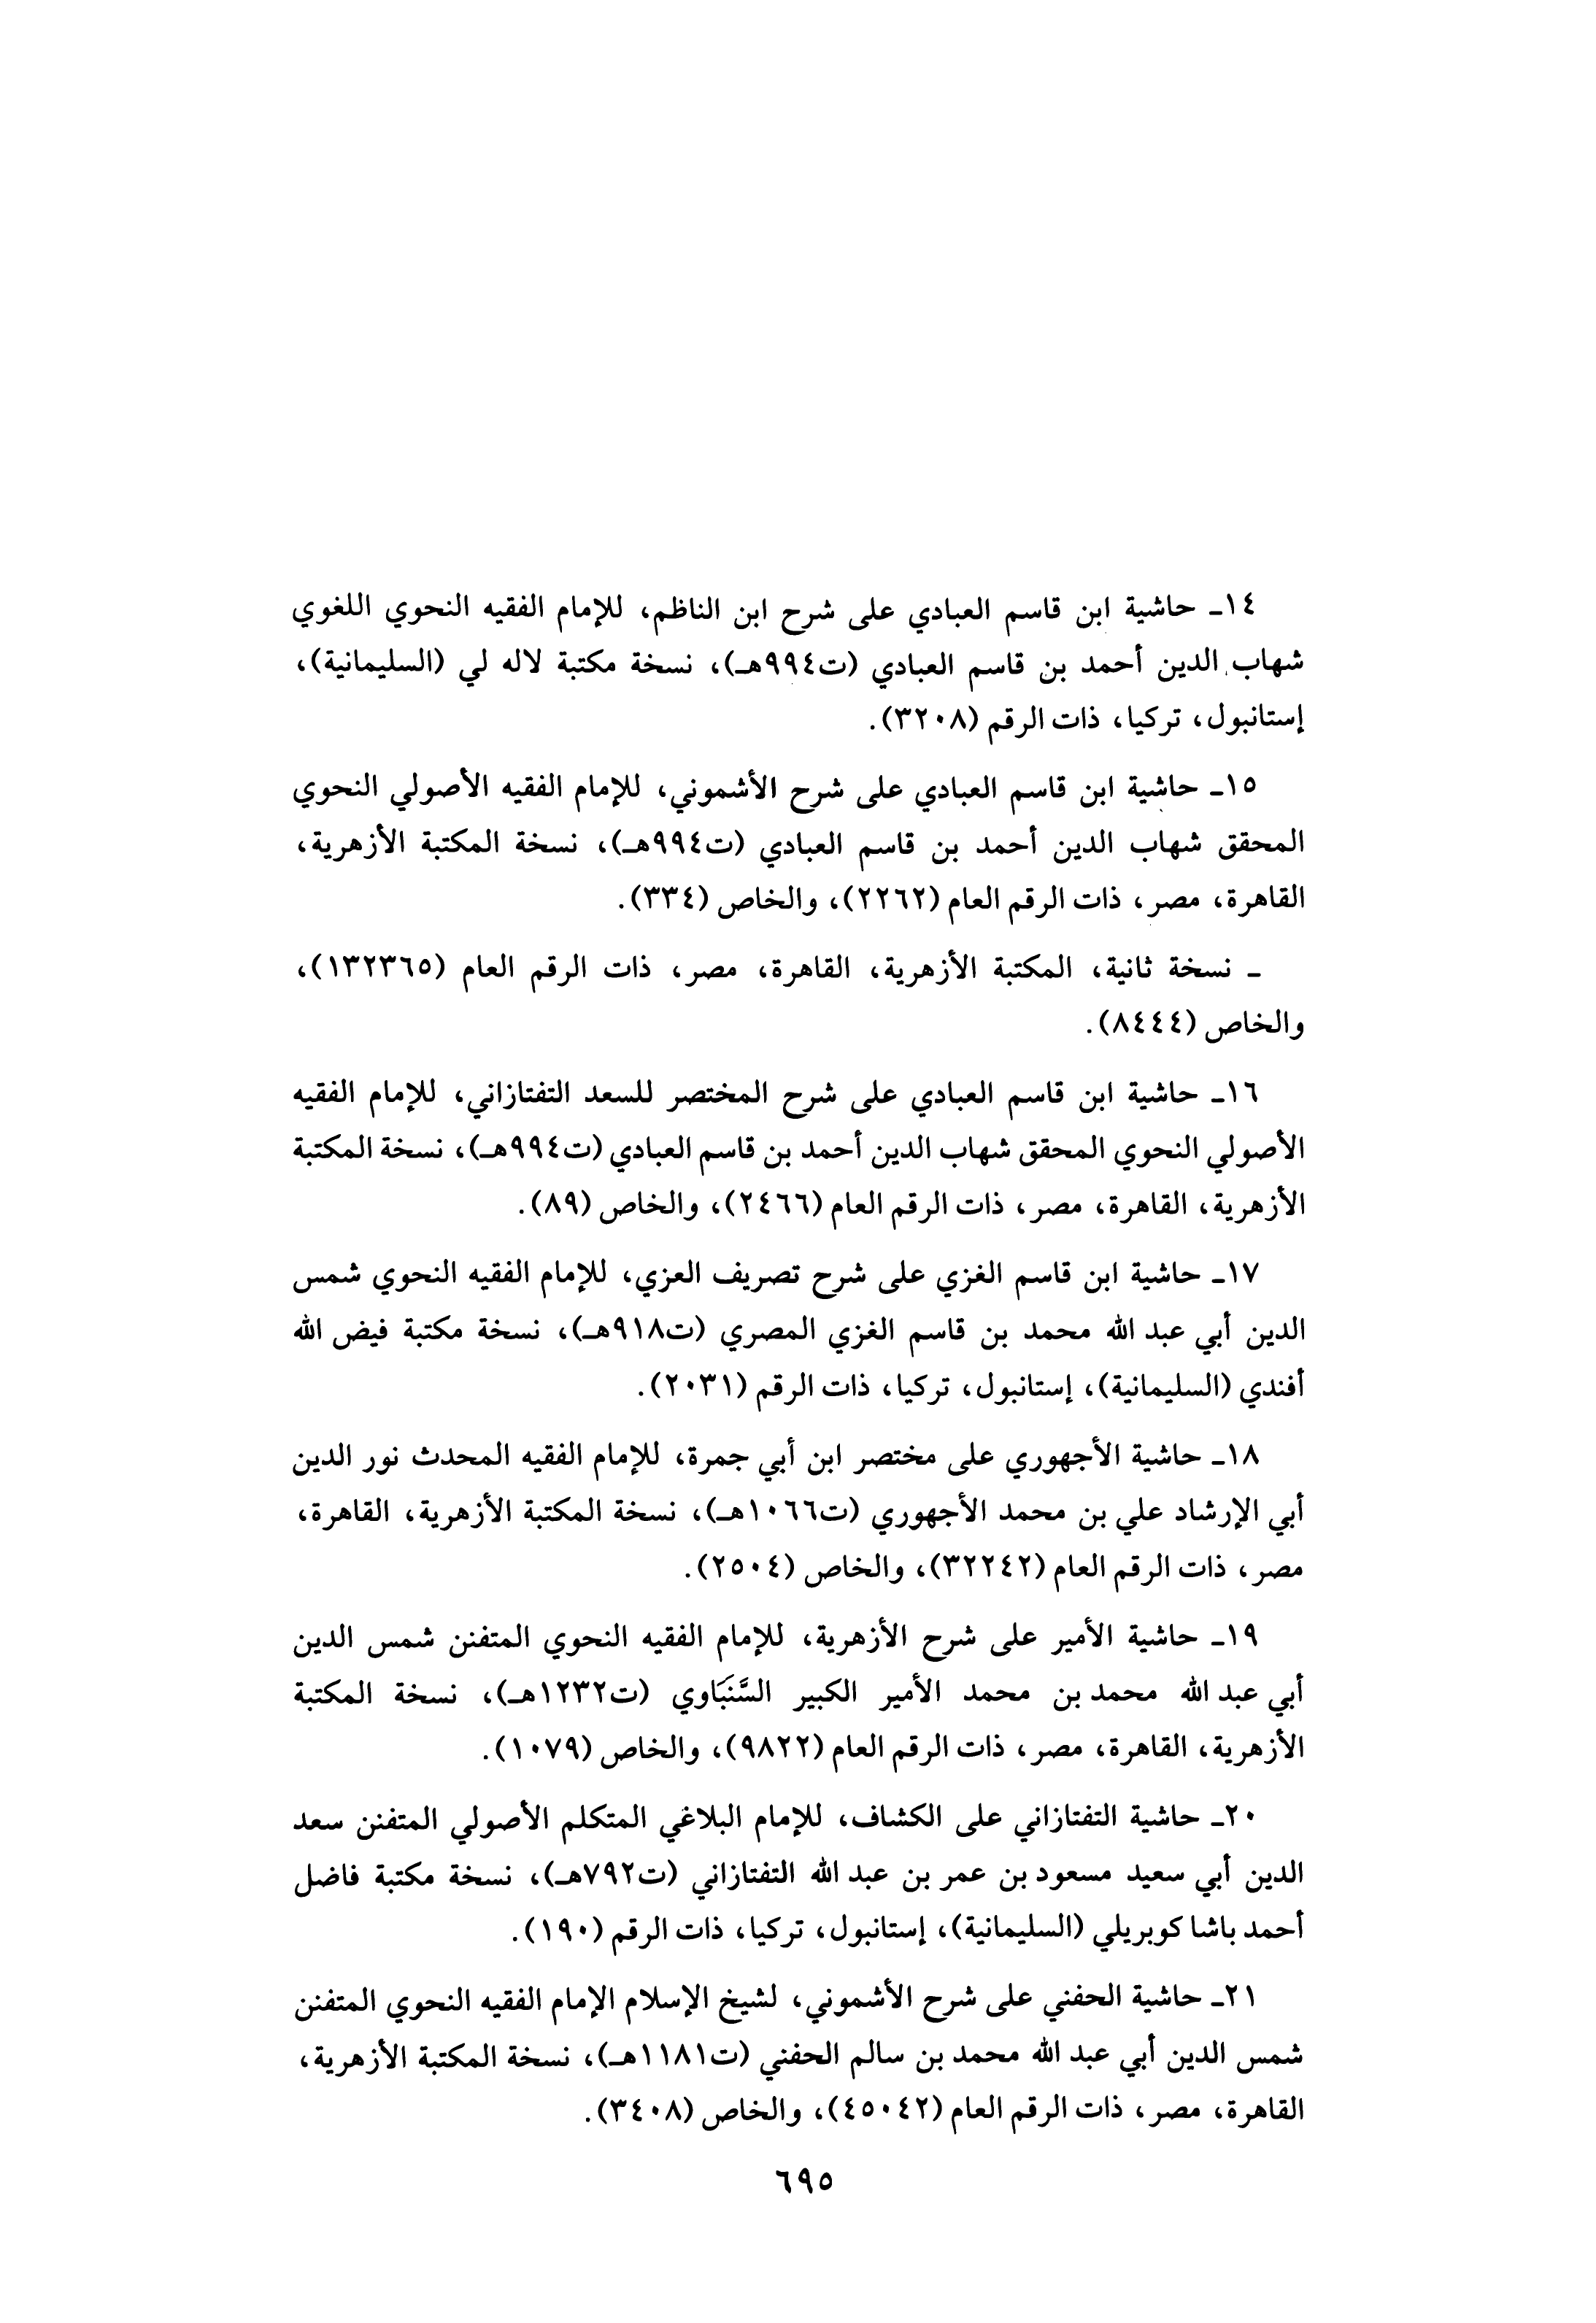 ١٤ـ حاشية ابن قاسم العبادي على شرح ابن الناظم، للإمام الفقيه النحوي اللغوي
شهاب الدين أحمد بن قاسم العبادي (ت٩٩٤هـ)، نسخة مكتبة لاله لي (السليمانية)،
إستانبول، تركيا، ذات الرقم (٣٢٠٨).
١٥ـ حاشية ابن قاسم العبادي على شرح الأشموني، للإمام الفقيه الأصولي النحوي
المحقق شهاب الدين أحمد بن قاسم العبادي (ت٩٩٤هـ)، نسخة المكتبة الأزهرية،
القاهرة، مصر، ذات الرقم العام (٢٢٦٢)، والخاص (٣٣٤).
ـ نسخة ثانية، المكتبة الأزهرية، القاهرة، مصر، ذات الرقم العام (١٣٢٣٦٥)،
والخاص (٨٤٤٤).
١٦ـ حاشية ابن قاسم العبادي على شرح المختصر للسعد التفتازاني، للإمام الفقيه
الأصولي النحوي المحقق شهاب الدين أحمد بن قاسم العبادي (ت٩٩٤هـ)، نسخة المكتبة
الأزهرية، القاهرة، مصر، ذات الرقم العام (٢٤٦٦)، والخاص (٨٩).
١٧ـ حاشية ابن قاسم الغزي على شرح تصريف العزي، للإمام الفقيه النحوي شمس
الدين أبي عبد الله محمد بن قاسم الغزي المصري (ت٩١٨هـ)، نسخة مكتبة فيض الله
أفندي (السليمانية)، إستانبول، تركيا، ذات الرقم (٢٠٣١).
١٨ـ حاشية الأجهوري على مختصر ابن أبي جمرة، للإمام الفقيه المحدث نور الدين
أبي الإرشاد علي بن محمد الأجهوري (ت١٠٦٦هـ)، نسخة المكتبة الأزهرية، القاهرة،
مصر، ذات الرقم العام (٣٢٢٤٢)، والخاص (٢٥٠٤).
١٩ـ حاشية الأمير على شرح الأزهرية، للإمام الفقيه النحوي المتفنن شمس الدين
أبي عبد الله محمد بن محمد الأمير الكبير السَّنبَاوي (ت١٢٣٢هـ)، نسخة المكتبة
الأزهرية، القاهرة، مصر، ذات الرقم العام (٩٨٢٢)، والخاص (١٠٧٩).
٢٠ـ حاشية التفتازاني على الكشاف، للإمام البلاغي المتكلم الأصولي المتفنن سعد
الدين أبي سعيد مسعود بن عمر بن عبد الله التفتازاني (ت٧٩٢هـ)، نسخة مكتبة فاضل
أحمد باشا كوبريلي (السليمانية)، إستانبول، تركيا، ذات الرقم (١٩٠).
٢١ـ حاشية الحفني على شرح الأشموني، لشيخ الإسلام الإمام الفقيه النحوي المتفنن
شمس الدين أبي عبد الله محمد بن سالم الحفني (ت١١٨١هـ)، نسخة المكتبة الأزهرية،
القاهرة، مصر، ذات الرقم العام (٤٥٠٤٢)، والخاص (٣٤٠٨).
٦٩٥